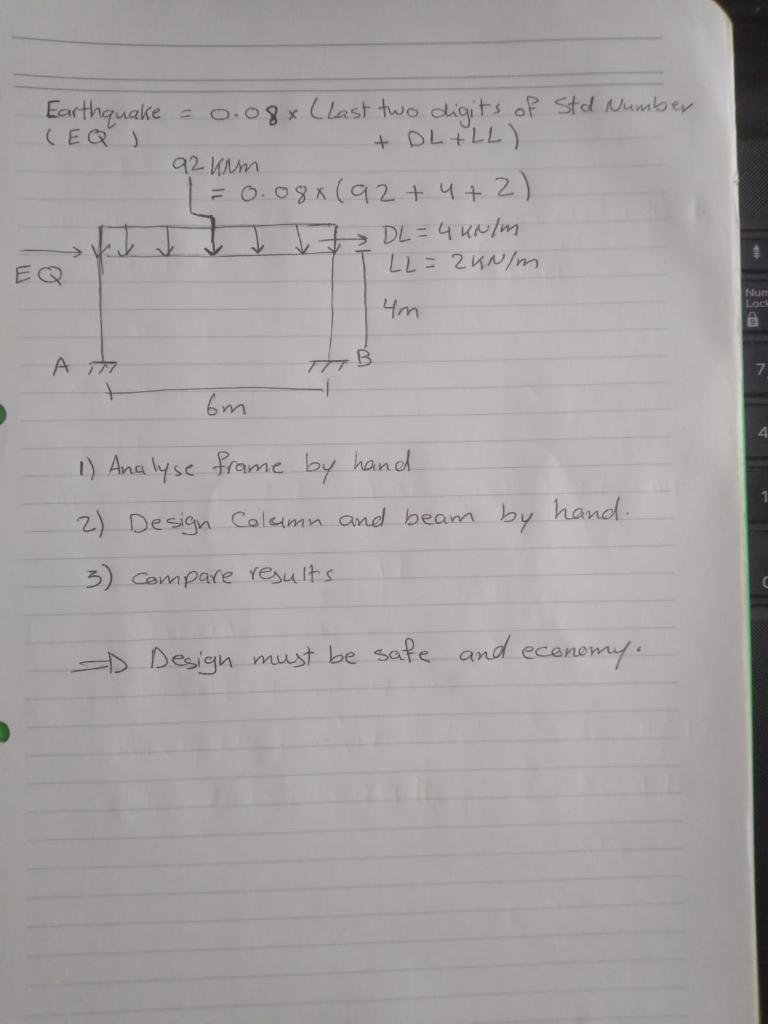 Earthquake = 0.08 x (Last two digits of Std Number
(EQ) + DL + LL)
92 KNm
= 0.08x(92 + 4 + 2)
DL = 4 KN/m
EQ LL = 2KN/m
4m
A B
6m
1) Analyse frame by hand
2) Design Column and beam by hand.
3) compare results
=D Design must be safe and economy.
Num
Lock
7
4
1